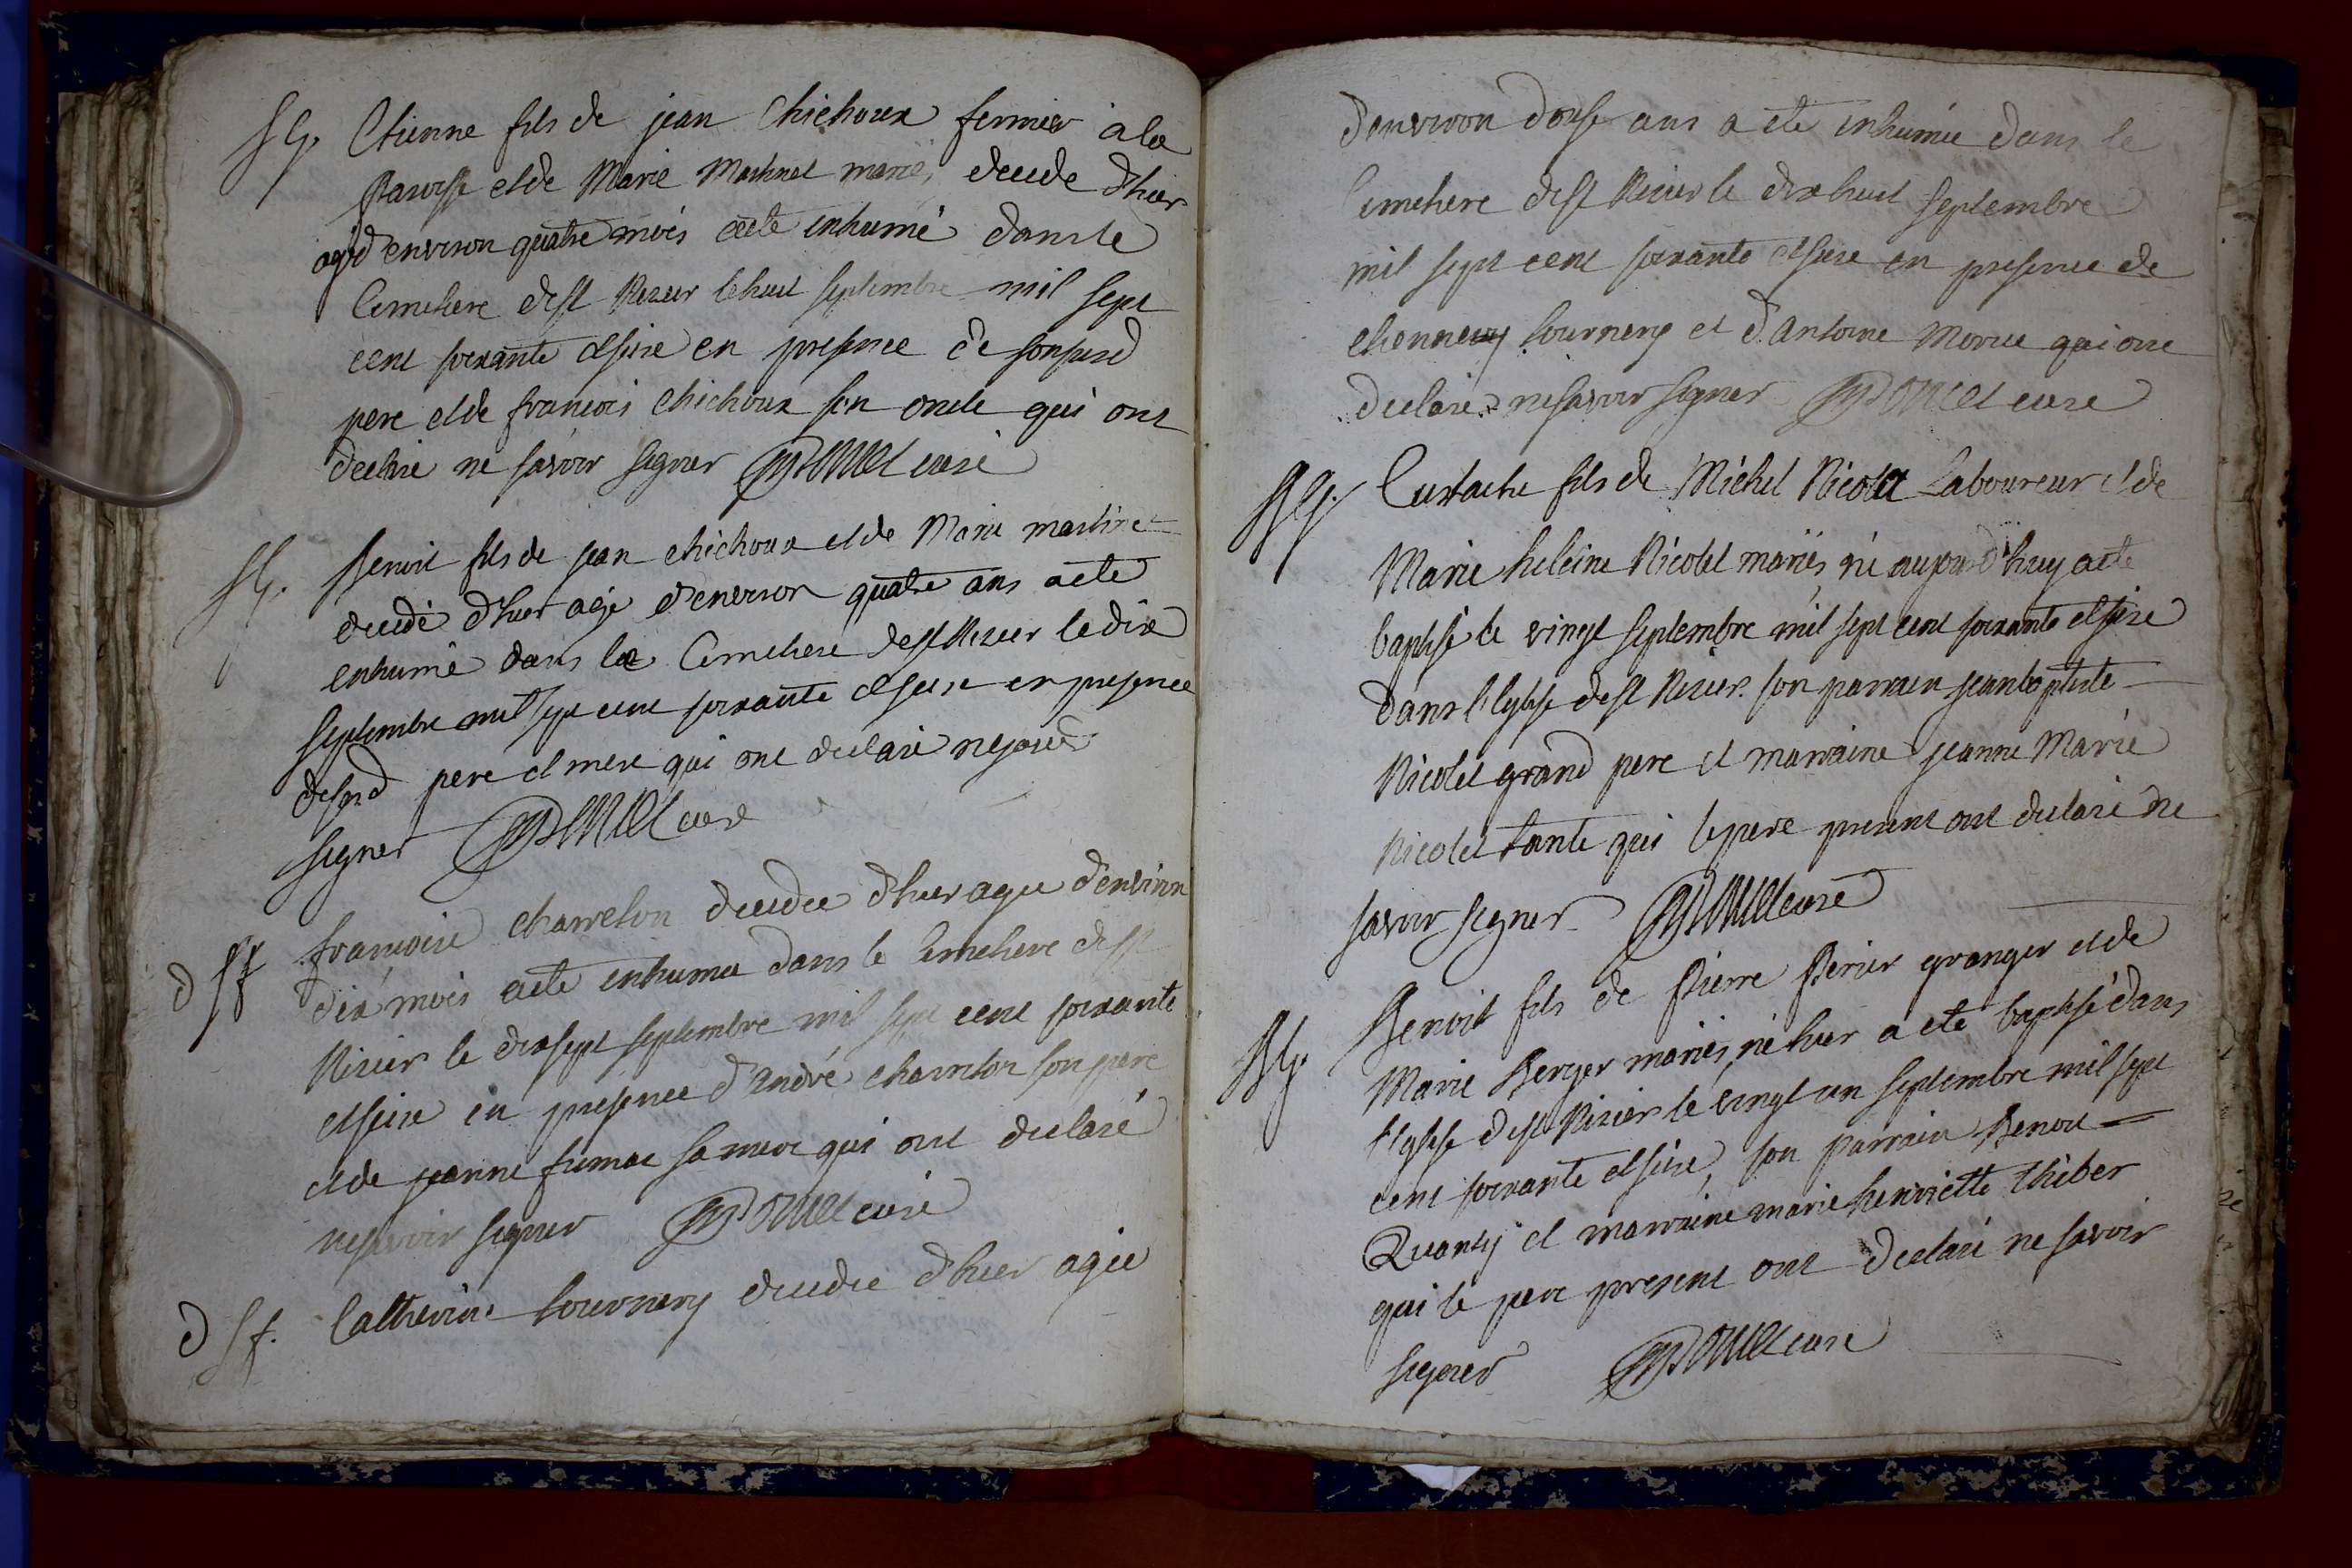 Etienne fils de jean Chichoux fermier a la
Paroisse et de Marie Martinet mariés, decede d'hier
agé d'environ quatre mois a ete inhumé dans le
Cimetiere de St Rizier le huit septembre mil sept
cent soixante et seize en presence de son susd
pere et de francois Chichoux son oncle qui ont
declaré ne savoir signer curé
Benoit fils de jean Chichoux et de Marie martinet
decedé d'hier agé d'environ quatre ans a ete
enhumé dans le Cimetiere de St Rizier le dix
septembre mil sept cent soixante et seize en presence
de sesd pere et mere qui ont declaré ne savoir
signer curé
francoise charreton decedée d'hier agee d'environ
dix mois a ete inhumee dans le Cimetiere de St
Rizier le dix sept septembre mil sept cent soixante
et seize en presence d'André charreton son pere
et de jeanne sa mere qui ont declaré
ne savoir signer curé
Catherine Tournery decedée d'hier agée
d'environ douse ans a eté inhumée dans le
Cimetiere de St Rizier le dix huit septembre
mil sept cent soixante et seize en presence de
Tournery et d'Antoine qui ont
declaré ne savoir signer curé
Eustache fils de Michel Nicolet Laboureur et de
Marie heleine Nicolet mariés, né aujourd'huy a ete
baptisé le vingt septembre mil sept cent soixante et seize
dans l'Eglise de St Rizier. son parrain jean baptiste
Nicolet grand pere et marraine jeanne Marie
Nicolet tante qui le pere present ont declaré ne
savoir signer curé
Benoit fils de Pierre Perier granger et de
Marie Berger mariés, né hier a eté baptisé dans
l'Eglise de St Rizier le vingt un septembre mil sept
cent soixante et seize, son parrain Benoit
et marraine marie henriette Thiber
qui le pere present ont declaré ne savoir
signer curé